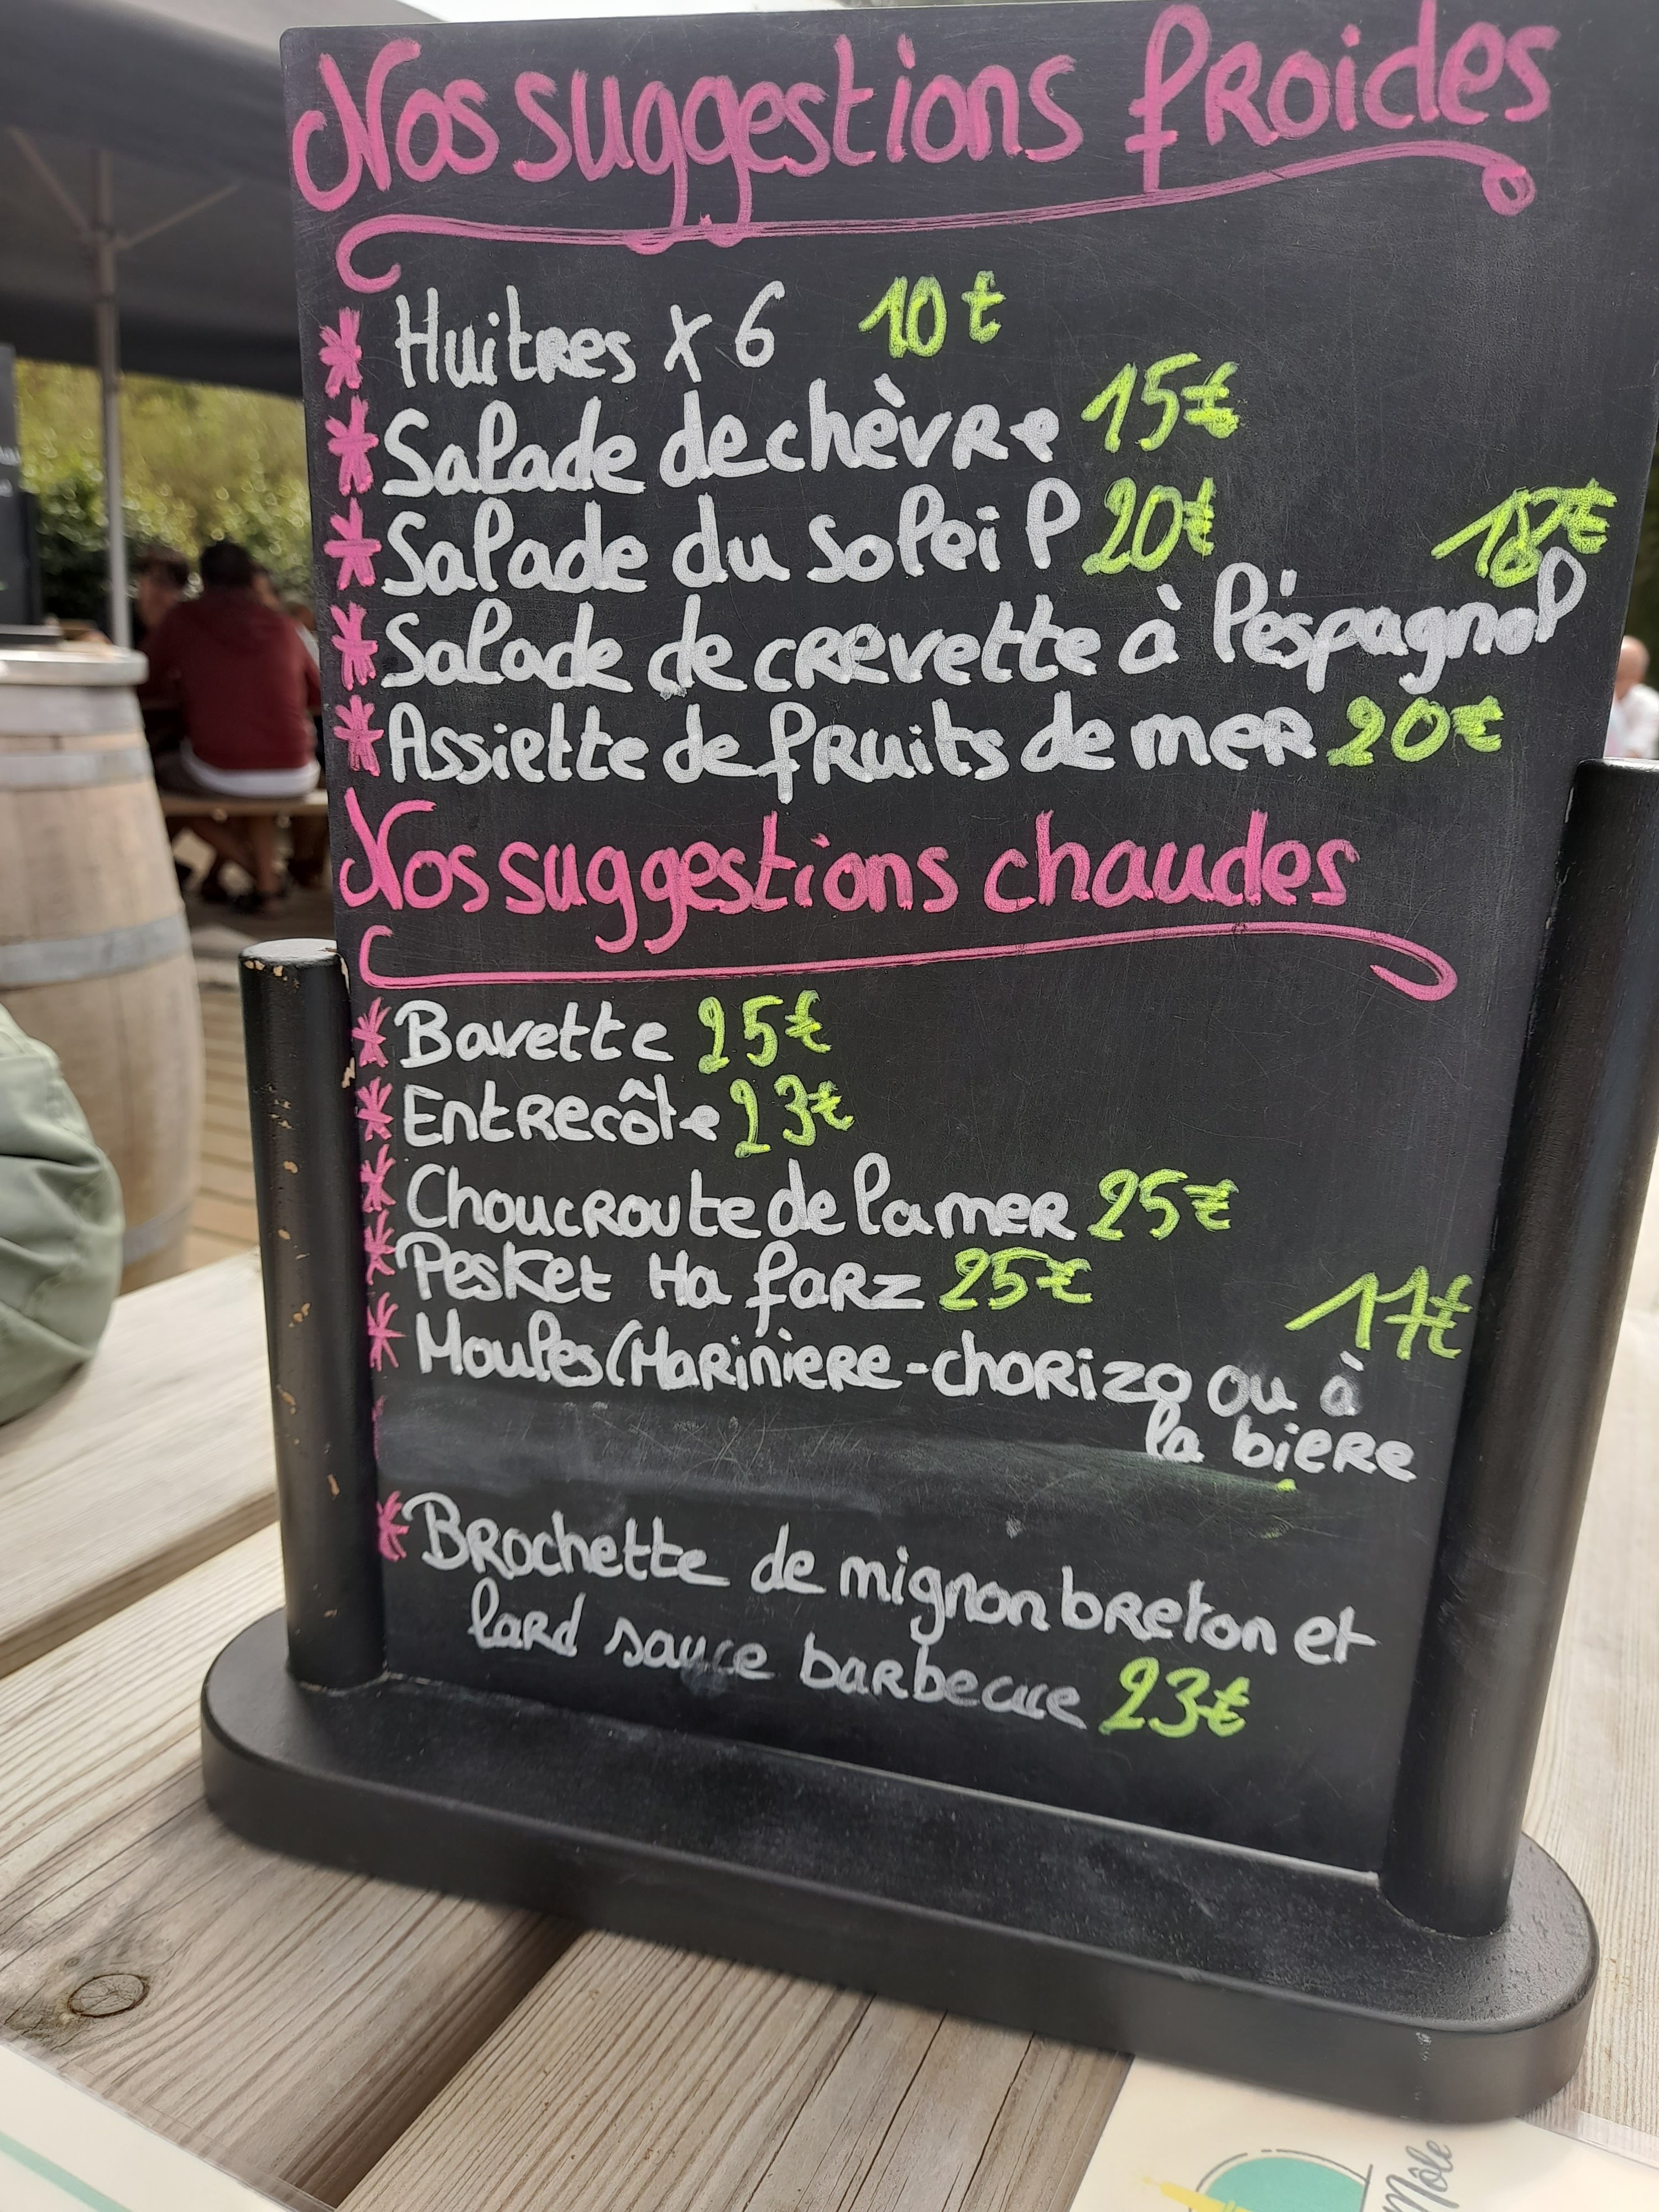 Nos suggestions froides
* Huitres x 6 10€
* Salade de chèvre 15€
* Salade du soleil 20€
18€
* Salade de crevette à l'éspagnol
* Assiette de fruits de mer 20€
Nos suggestions chaudes
* Bavette 25€
* Entrecôte 23€
* Choucroute de la mer 25€
* Pesket Ha farz 25€
17€
* Moules (Marinière - chorizo ou à
la biere
* Brochette de mignon breton et
lard sauce barbecue 23€
Môle